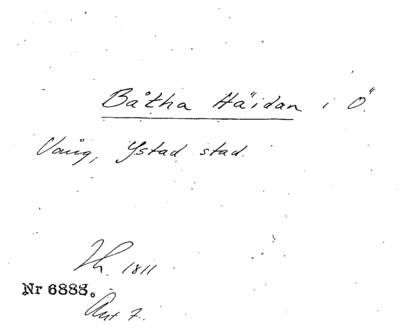 Båtha Häidan i Ö.
Vång, Ystad stad.
Th. 1811
Nr 6888.
Ant 7.